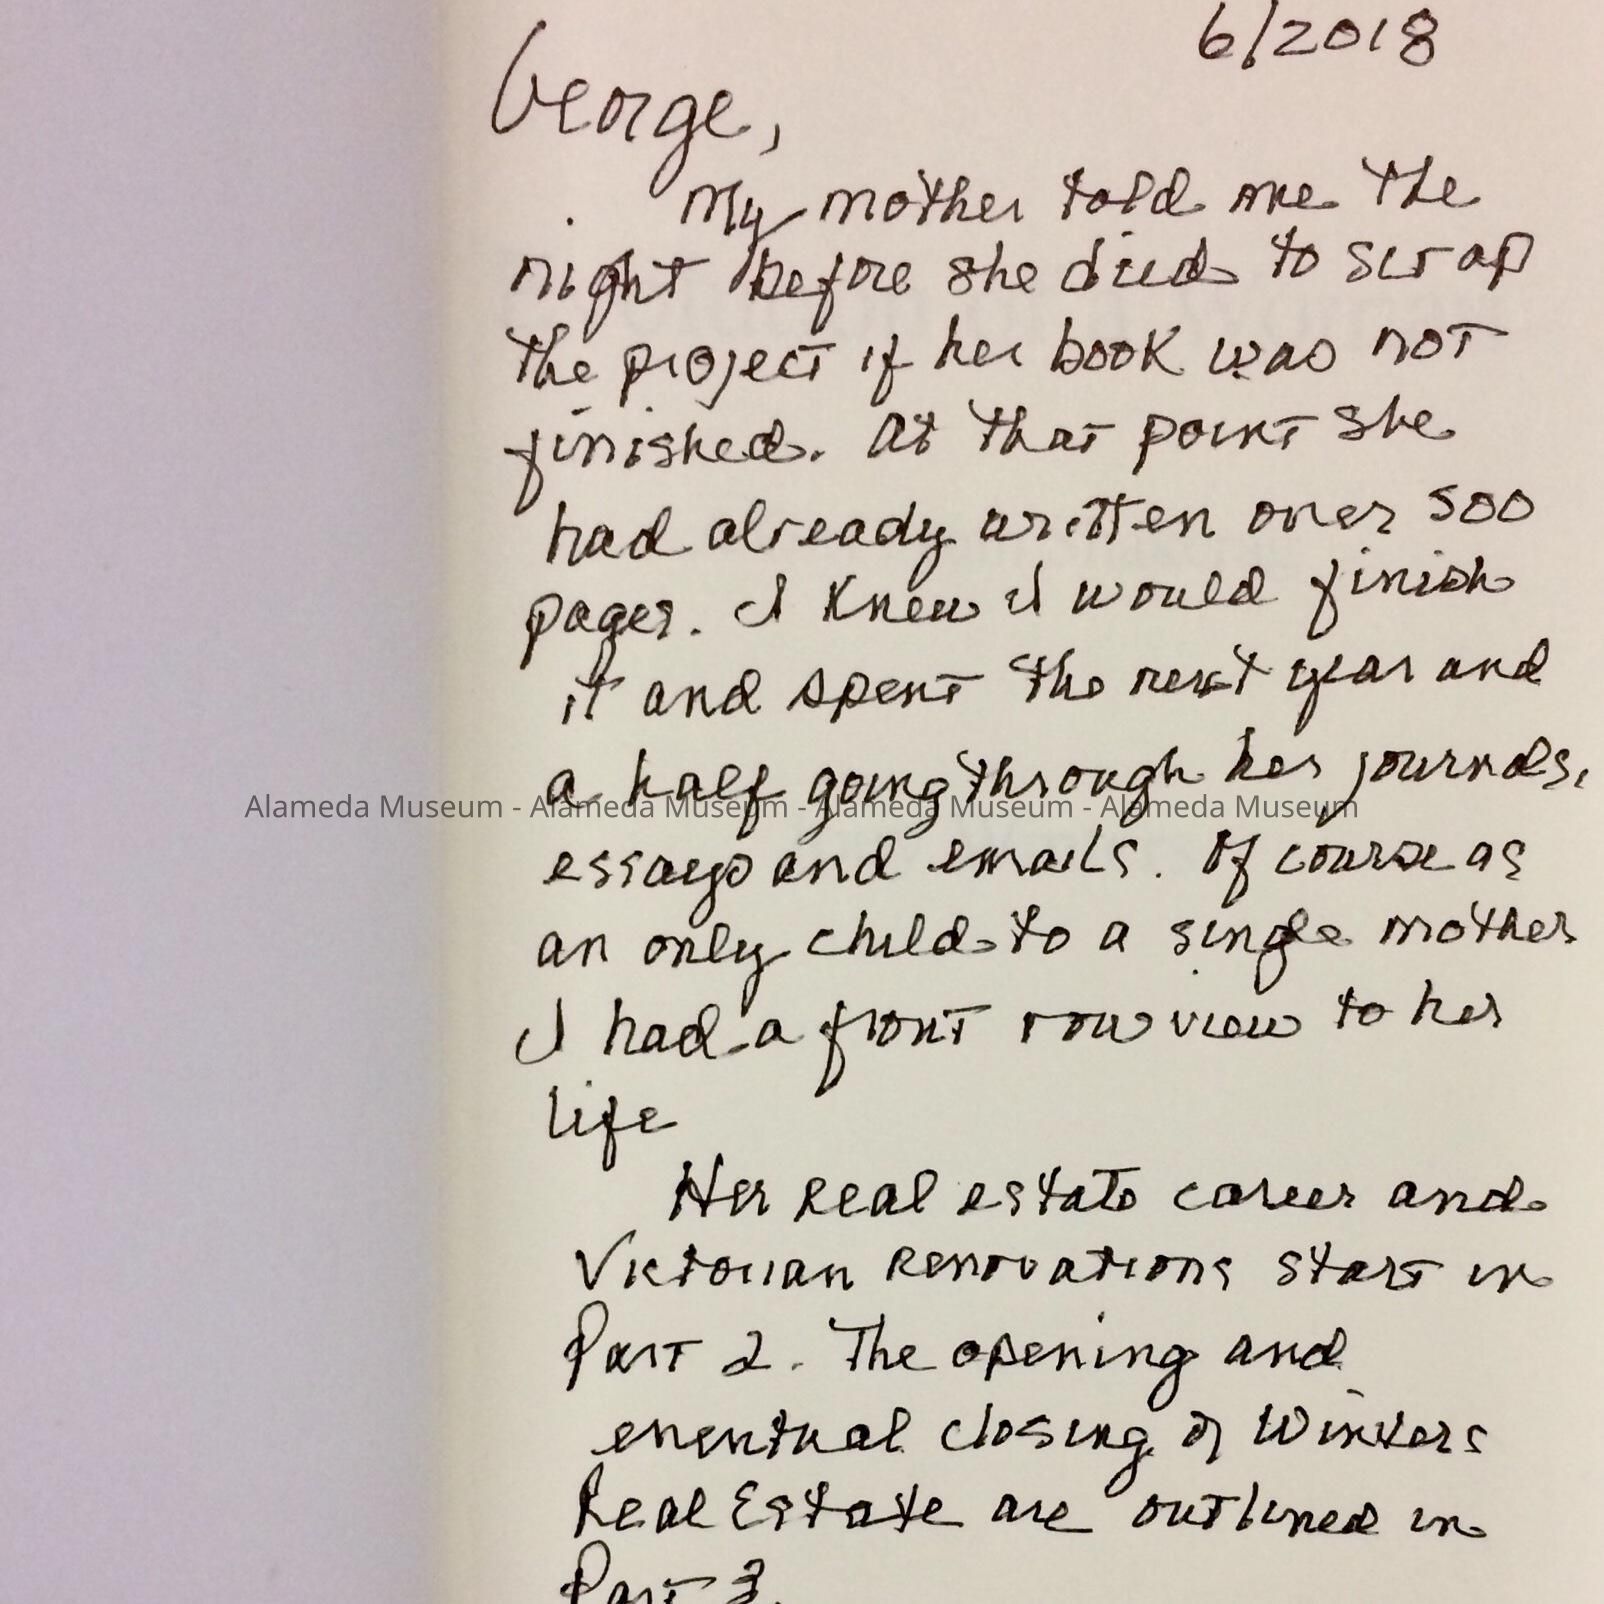 6/2018
George,
My mother told me the
night before she died to scrap
the project if her book was not
finished. At that point she
had already written over 500
pages. I knew I would finish
it and spent the next year and
a half going through her journals,
Alameda Museum - Alameda Museum - Alameda Museum - Alameda Museum
essays and emails. Of course as
an only child to a single mother
I had a front row view to her
life
Her real estate career and
Victorian renovations start in
Part 2. The opening and
eventual closing of Winters
Real Estate are outlined in
Part 3.